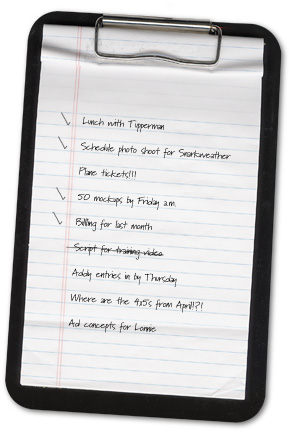 Lunch with Tupperman
Schedule photo shoot for Snarkweather
Plane tickets!!!
50 mockups by Friday a.m.
Billing for last month
Script for training video
Addy entries in by Thursday
Where are the 4x5's from April?!?!
Ad concepts for Lonnie